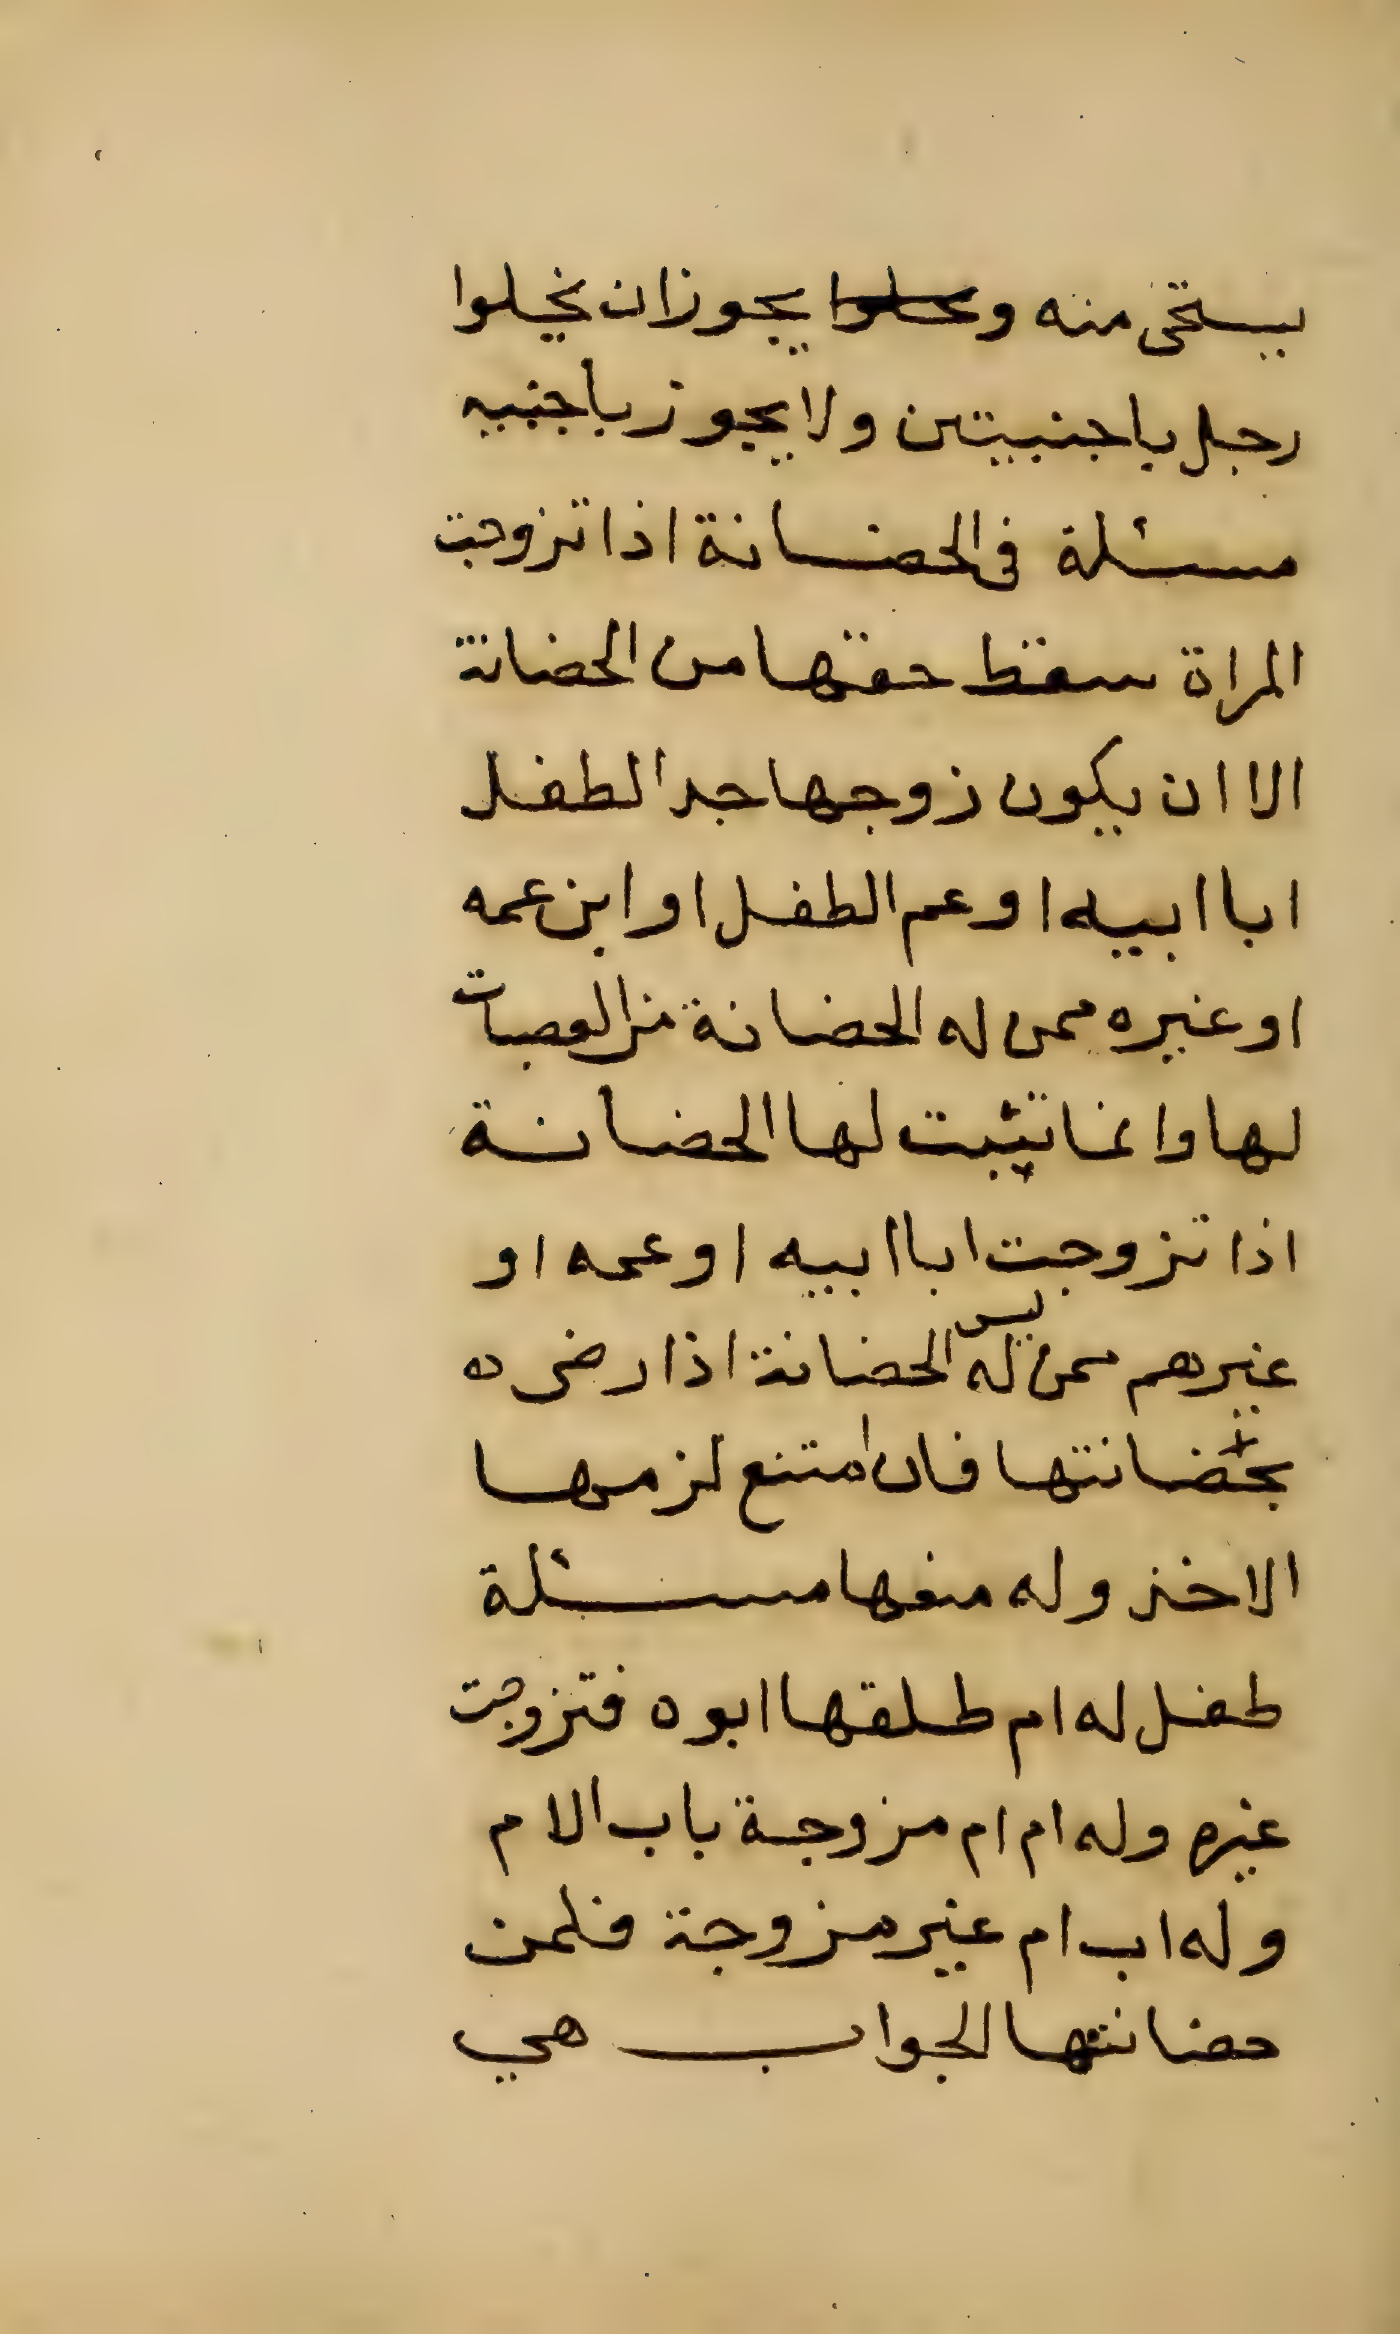 يستحى منه و يجوز ان يخلوا
رجل باجنبيتين ولا يجوز باجنبيه
مسئلة فى الحضانة اذا تزوجت
المراة سقط حقها من الحضانة
الا ان يكون زوجها جد الطفل
ابا ابيه او عم الطفل او ابن عمه
او غيره ممن له الحضانة من العصبات
لها وانما تثبت لها الحضانة
اذا تزوجت ابا ابيه او عمه او
غيرهم ممن ليس له الحضانة اذا رضى
بحضانتها فان امتنع لزمها
الاخذ وله منعها مسئلة
طفل له ام طلقها ابوه فتزوجت
غيره وله ام ام مزوجة باب الام
وله اب ام غير مزوجة فلمن
حضانتها الجواب هي